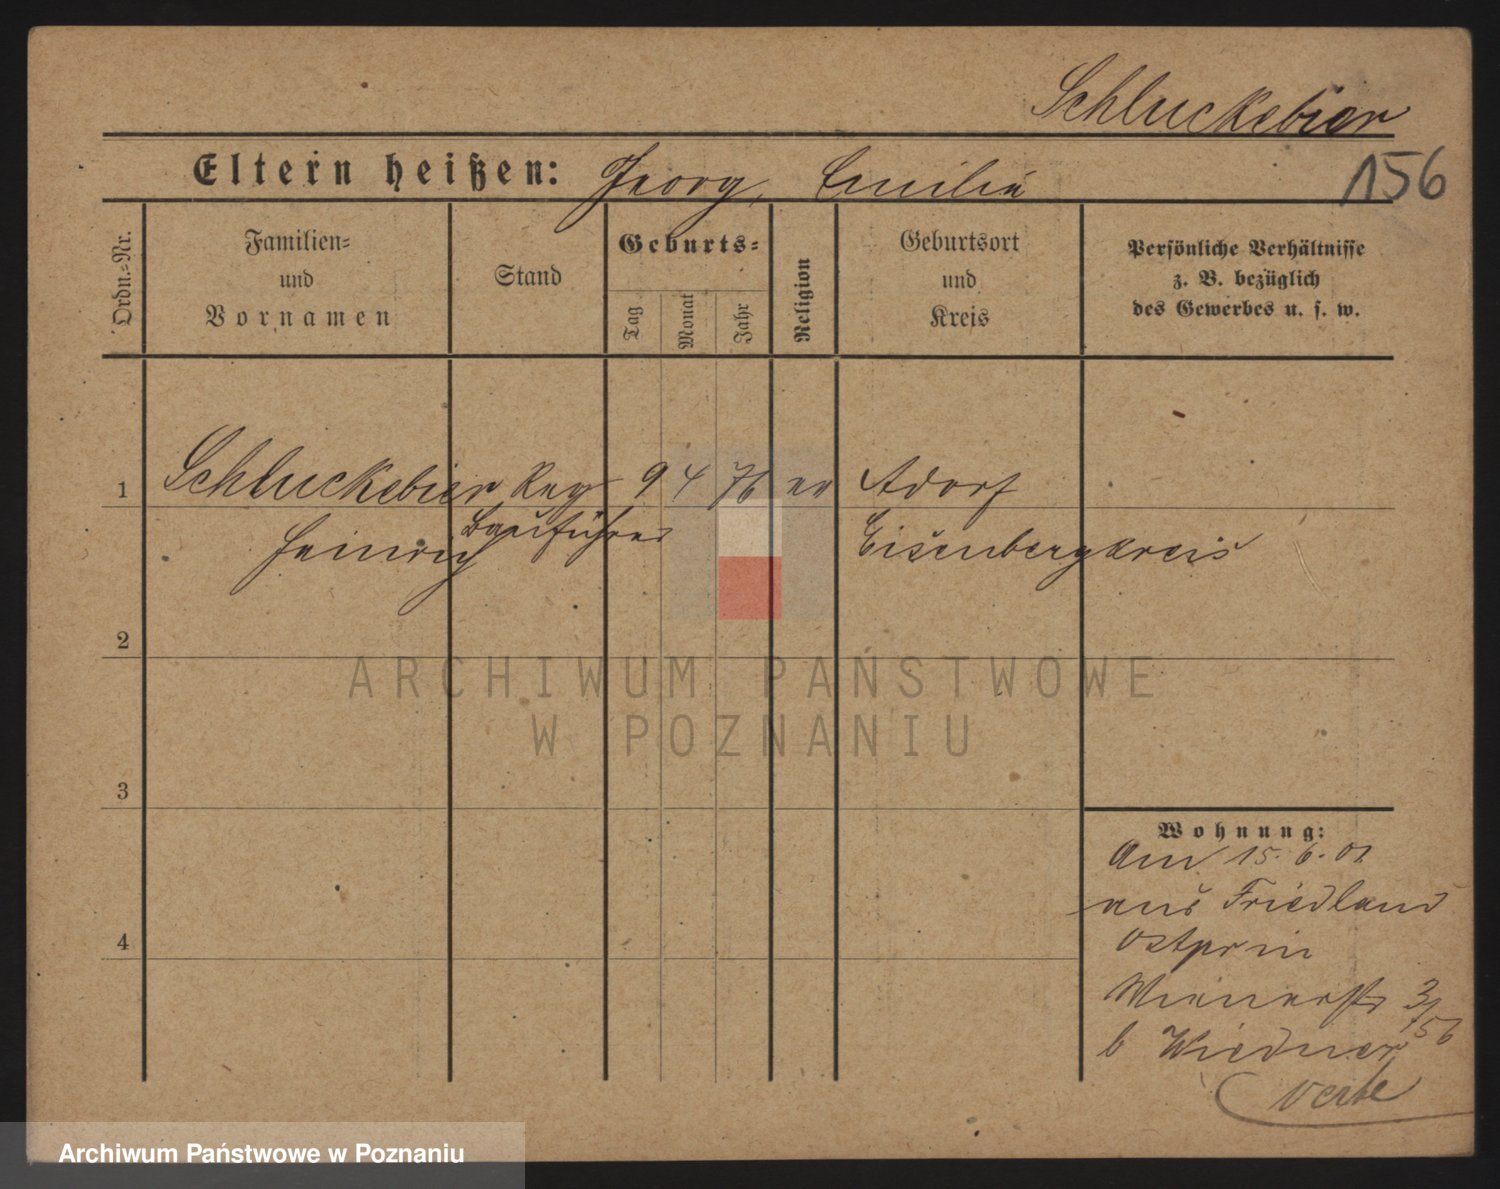 Schluckebier
156
Eltern heißen: Georg, Emilie
Ordn.-Nr.
Familien-
und
Vornamen
Stand
Geburts-
Tag
Monat
Jahr
Religion
Geburtsort
und
Kreis
Persönliche Verhältnisse
z. B. bezüglich
des Gewerbes u. s. w.
1 Schluckebier Reg 9 4 76 ev Adorf
Heinrich Bauführer Eisenbergkreis
2
3
4
Wohnung:
Am 15. 6. 01
aus Friedland
Ostpr in
Wienerstr 3/
156
b Wiedner
ARCHIWUM PAŃSTWOWE
W POZNANIU
Archiwum Państwowe w Poznaniu